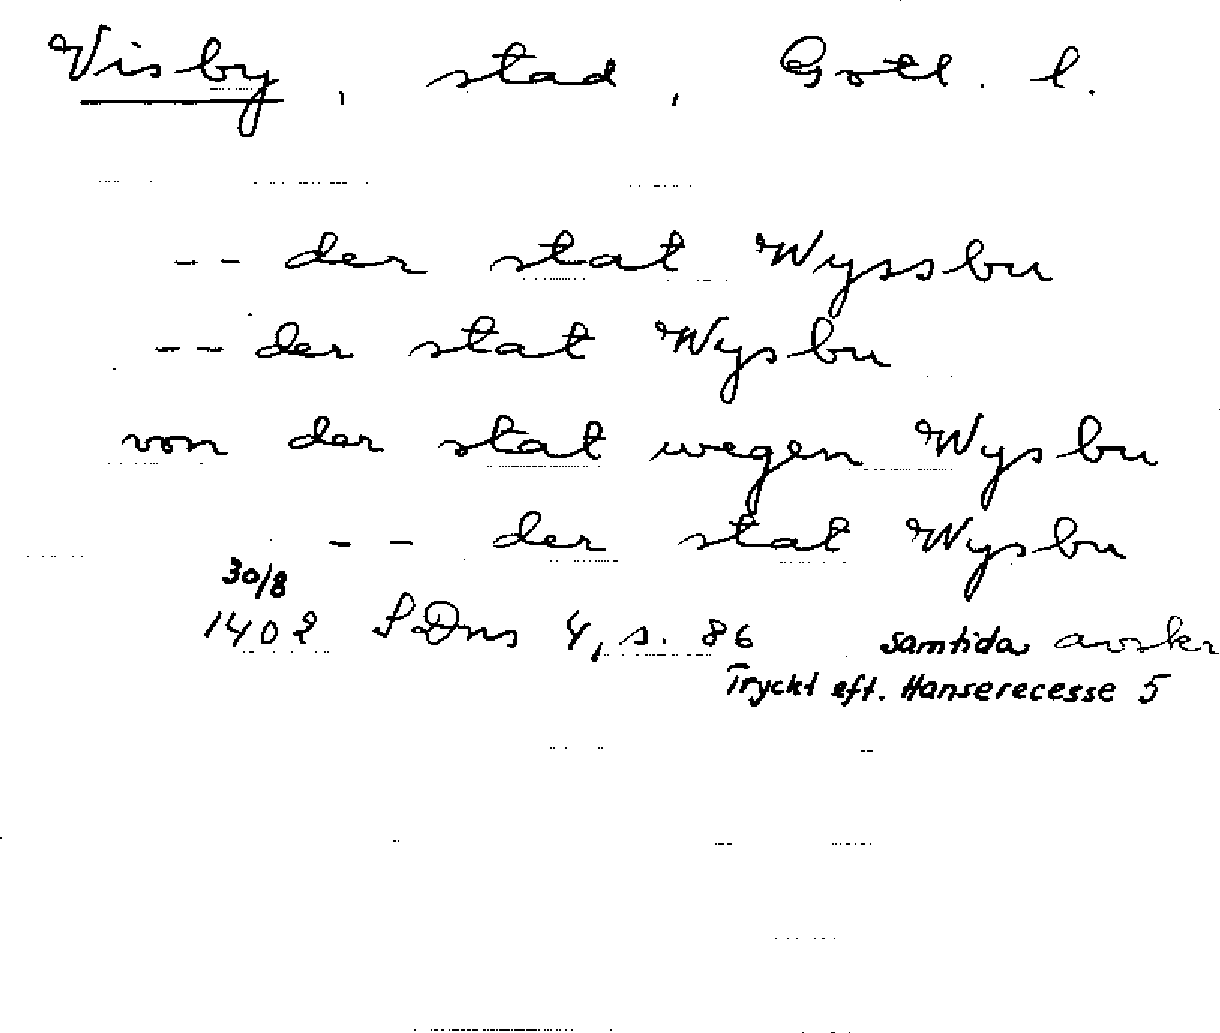 Visby, stad, Gotl. l.
-- der stat Wyssbu
-- der stat Wysbu
von der stat wegen Wysbu
-- der stat Wysbu
30/8
1402 SDns 4, s. 86 samtida avskr
Tryckt eft. Hanserecesse 5